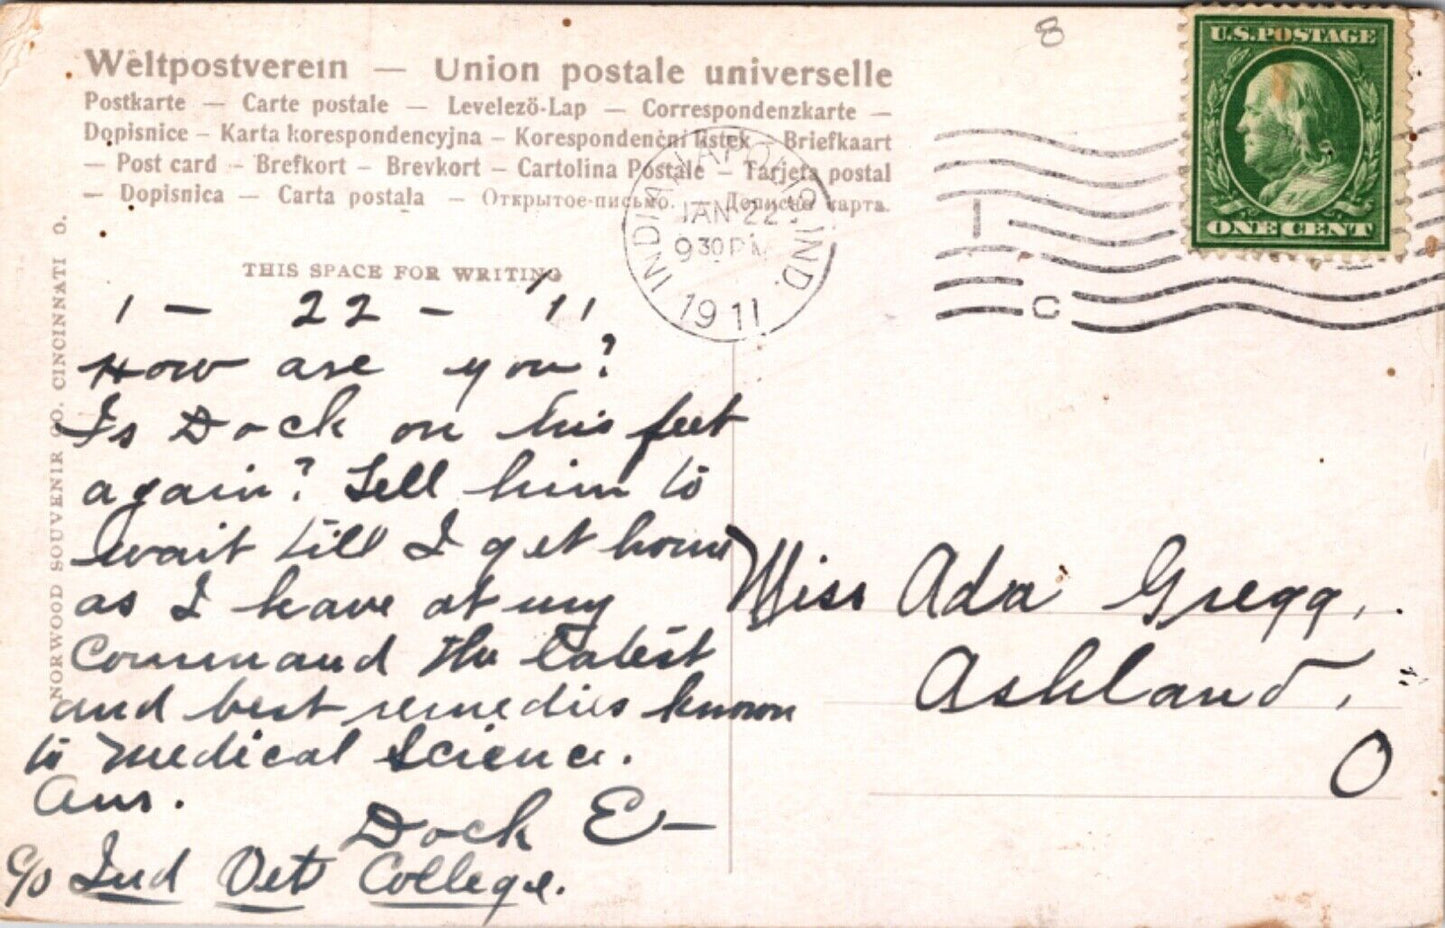 8
U.S. POSTAGE
ONE CENT
Weltpostverein — Union postale universelle
Postkarte — Carte postale — Levelező-Lap — Correspondenzkarte —
Dopisnice – Karta korespondencyjna – Korespondenční lístek – Briefkaart
— Post card – Brefkort – Brevkort – Cartolina Postale – Tarjeta postal
— Dopisnica — Carta postala – Открытое-письмо. – Дописна карта.
INDIANAPOLIS, IND.
JAN 22
9 30 PM
1911
1
C
THIS SPACE FOR WRITING
1 – 22 – '11
How are you?
Is Dock on his feet
again? Tell him to
wait till I get home
as I have at my
command the latest
and best remedies known
to medical science.
Ans.
Dock E—
c/o Ind Vet College.
Miss Ada Gregg,
Ashland,
O
NORWOOD SOUVENIR CO. CINCINNATI O.